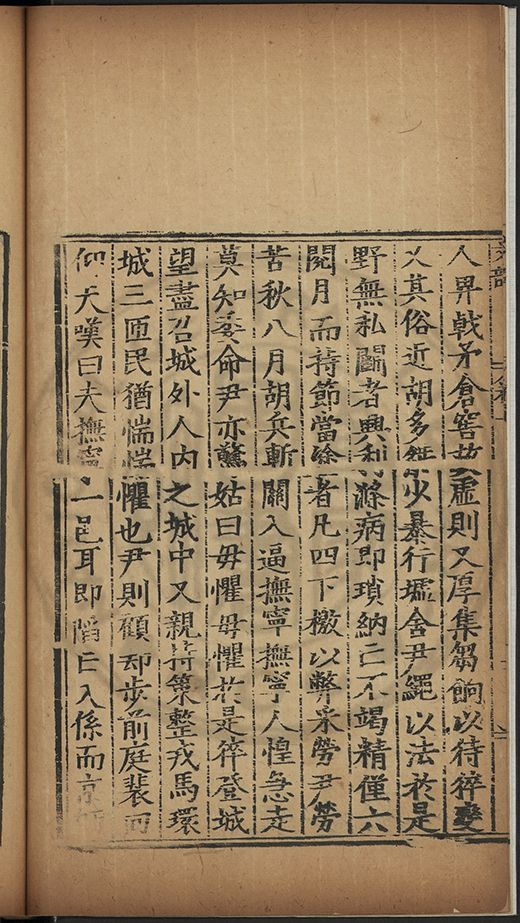 人畀戟矛倉窖故虛則又厚集芻餉以待猝變
又其俗近胡多獷少暴行墟舍尹繩以法於是
野無私鬭者興利滌病即瑣納亡不竭精僅六
閱月而持節當塗者凡四下檄以幣來勞尹勞
苦秋八月胡兵斬關入逼撫寧撫寧人惶急走
莫知委命尹亦驚姑曰毋懼毋懼於是猝登城
望盡召城外人內之城中又親持策整戎馬環
城三匝民猶惴惴懼也尹則顧却步前庭裴回
仰天嘆曰夫撫寧一邑耳即陷亡入係而京